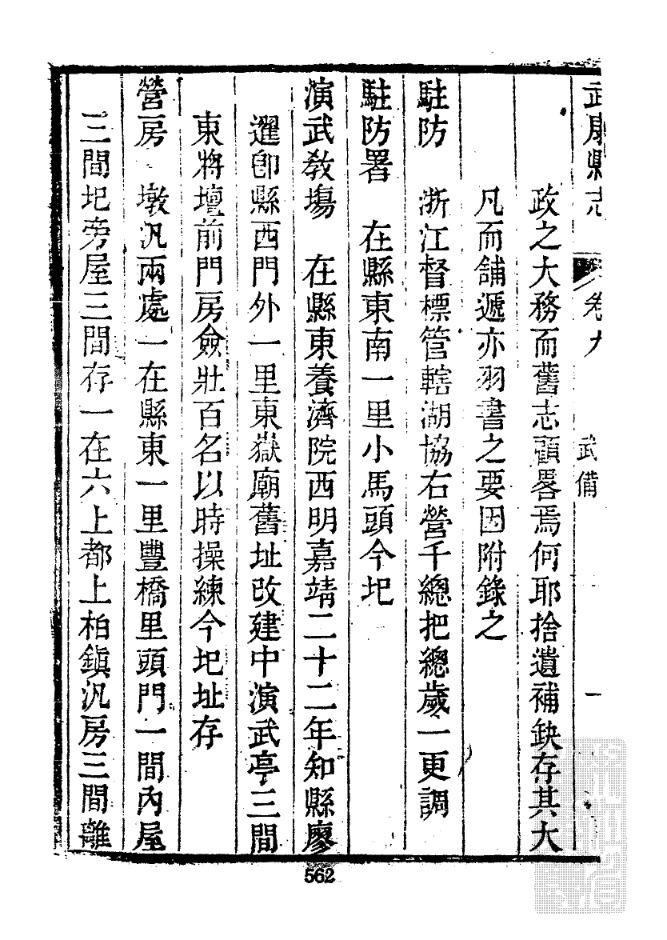 武康縣志 卷九 武備 一
政之大務而舊志顧畧焉何耶捨遺補缺存其大
凡而舖遞亦羽書之要因附錄之
駐防 浙江督標管轄湖協右營千總把總歲一更調
駐防署 在縣東南一里小馬頭今圯
演武敎塲 在縣東養濟院西明嘉靖二十二年知縣廖
暹卽縣西門外一里東嶽廟舊址改建中演武亭三間
東將壇前門房僉壯百名以時操練今圯址存
營房 墩汛兩處一在縣東一里豐橋里頭門一間內屋
三間圯旁屋三間存一在六上都上柏鎮汛房三間離
562